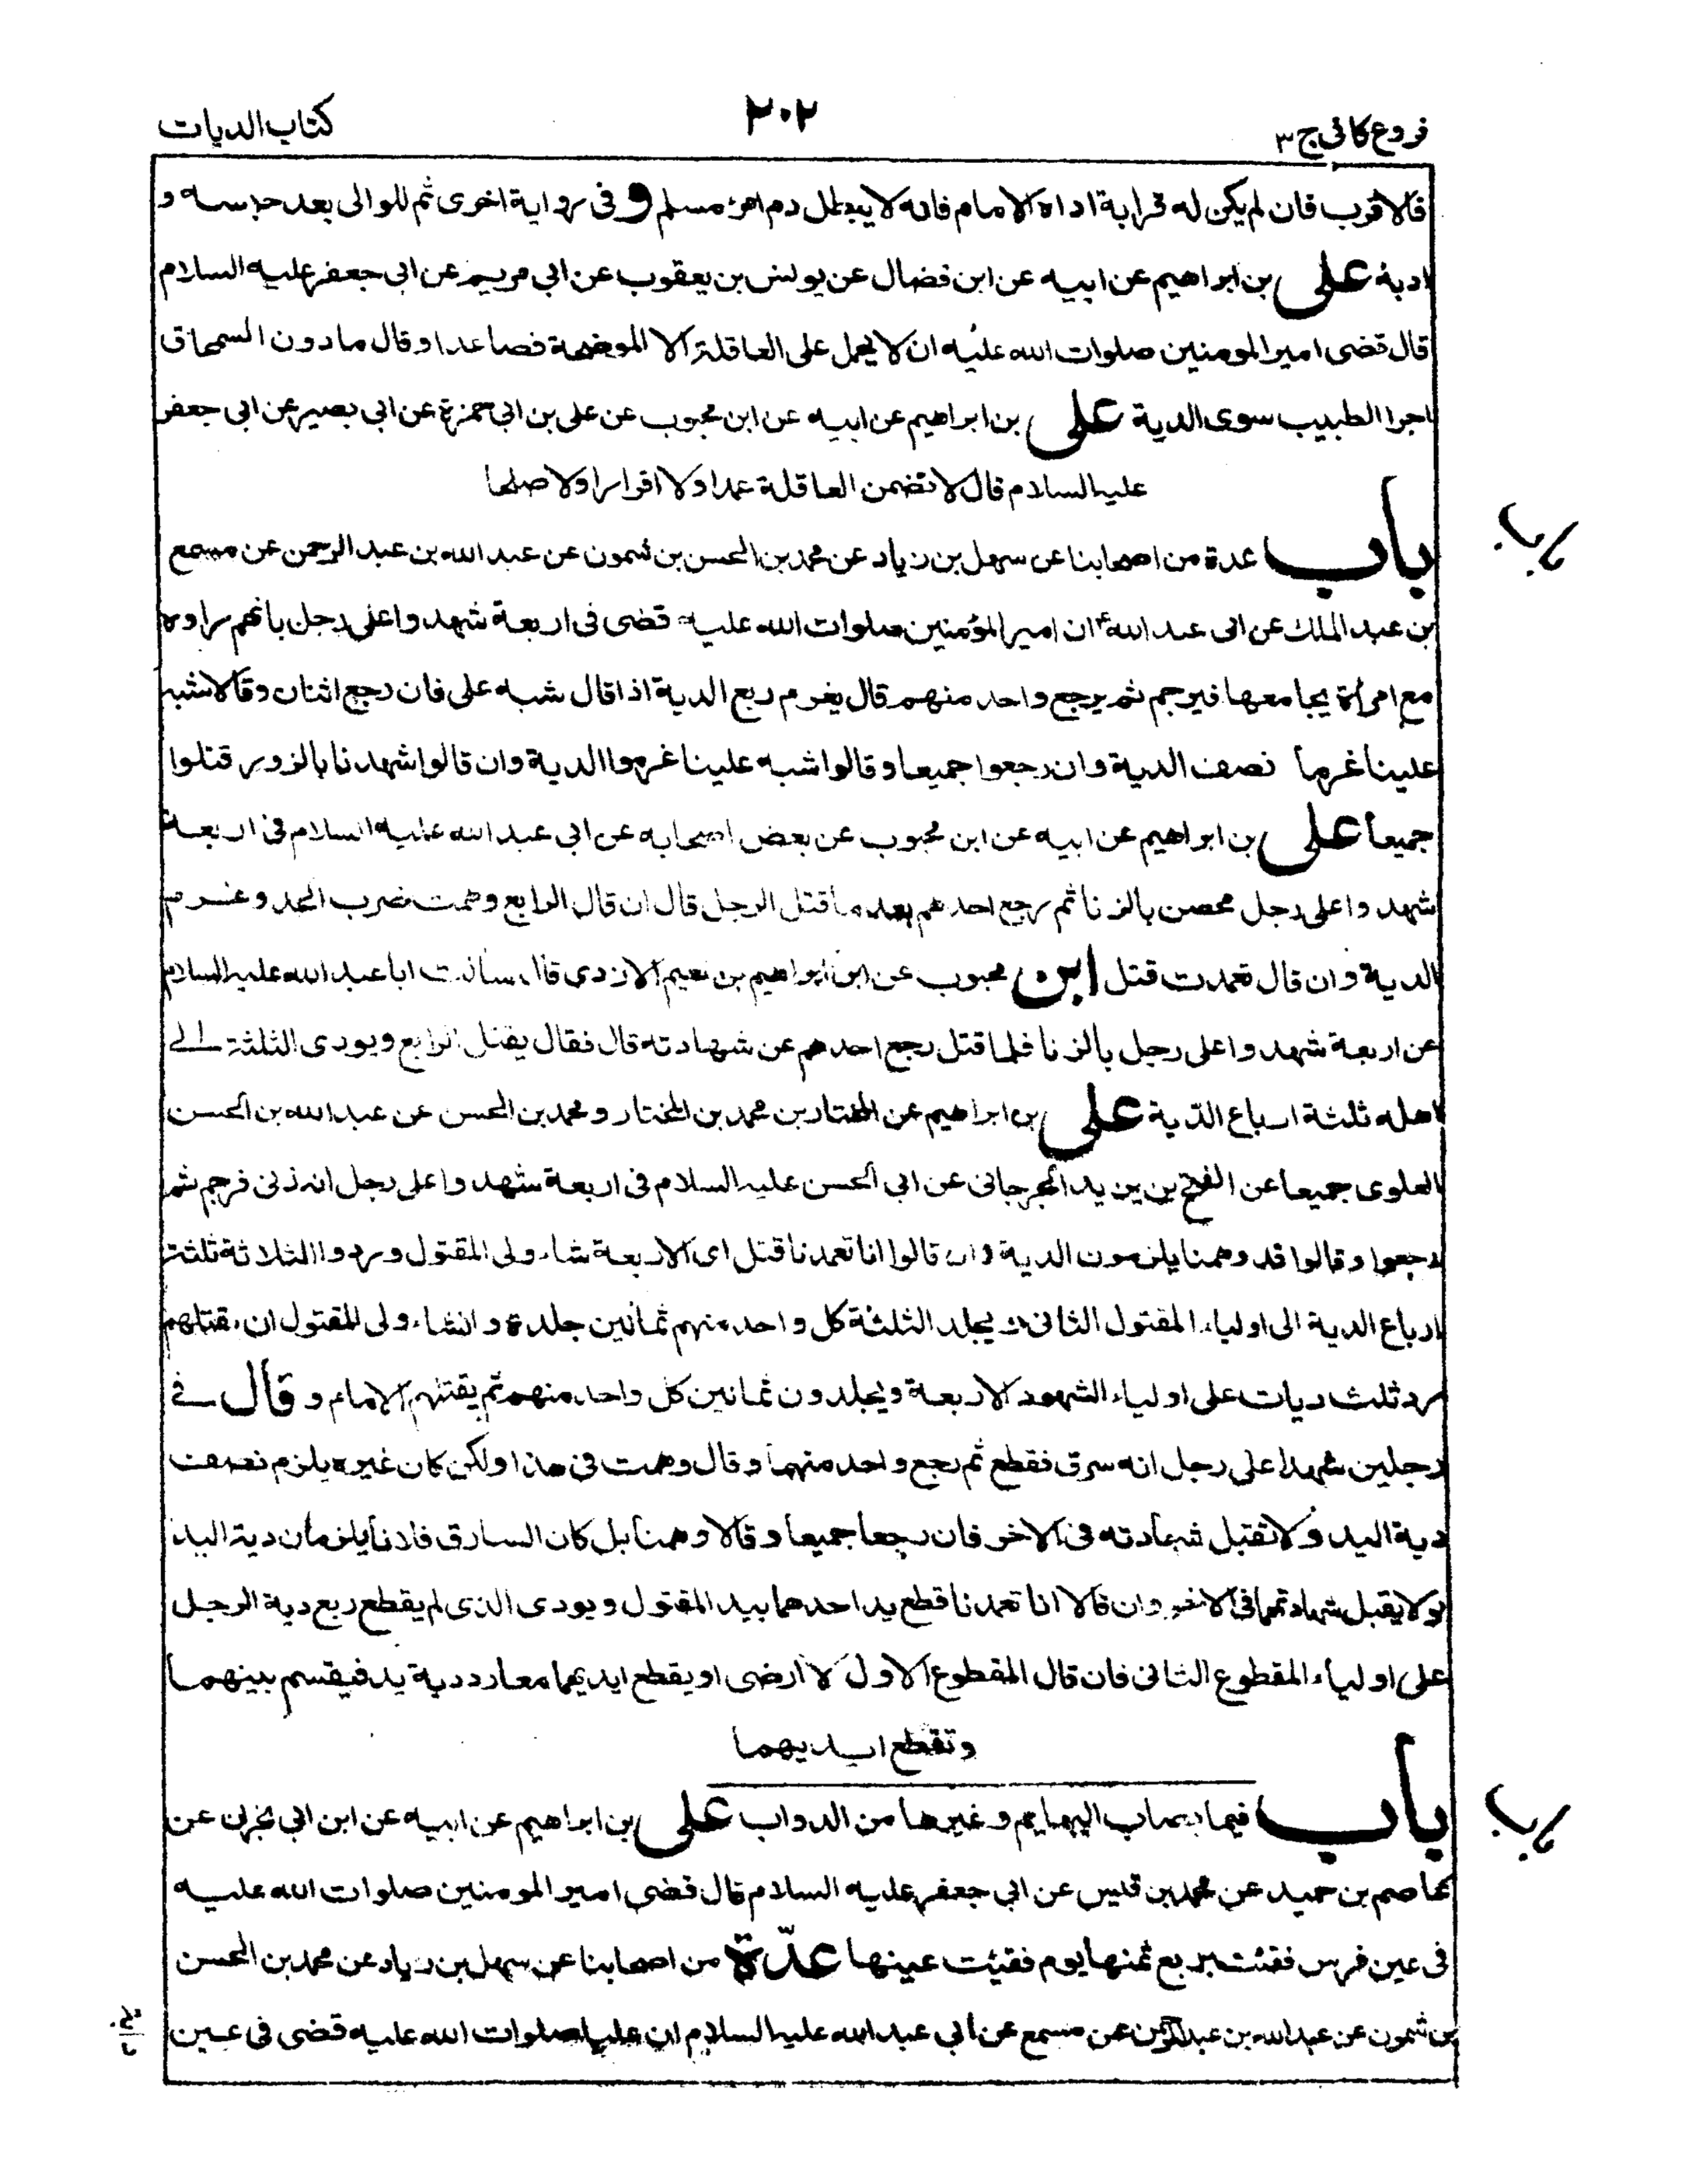 فروع كافى ج ٣
٢٠٢
كتاب الديات
فالاقرب فان لم يكن له قرابة اداه الامام فانه لا يبطل دم امرء مسلم و فى رواية اخرى ثم للوالى بعد حبسه و
ادبه على بن ابراهيم عن ابيه عن ابن فضال عن يونس بن يعقوب عن ابي مريم عن ابى جعفر عليه السلام
قال قضى امير المومنين صلوات الله عليه ان لا يحمل على العاقلة الا الموضحة فصاعدا وقال ما دون السمحاق
اجر الطبيب سوى الدية على بن ابراهيم عن ابيه عن ابن محبوب عن على بن ابي حمزة عن ابى بصير عن ابى جعفر
عليه السلام قال لا تضمن العاقلة عمدا ولا اقرارا ولا صلحا
باب
باب عدة من اصحابنا عن سهل بن زياد عن محمد بن الحسن بن شمون عن عبد الله بن عبد الرحمن عن مسمع
بن عبد الملك عن ابى عبد الله ع ان امير المؤمنين صلوات الله عليه قضى فى اربعة شهدوا على رجل بانهم راوه
مع امرأة يجامعها فيرجم ثم يرجع واحد منهم قال يغرم ربع الدية اذا قال شبه على فان رجع اثنان وقالا شبه
علينا غرما نصف الدية وان رجعوا جميعا وقالوا شبه علينا غرموا الدية وان قالوا شهدنا بالزور قتلوا
جميعا على بن ابراهيم عن ابيه عن ابن محبوب عن بعض اصحابه عن ابي عبد الله عليه السلام فى اربعة
شهدوا على رجل محصن بالزنا ثم رجع احدهم بعد ما قتل الرجل قال ان قال الرابع وهمت ضرب الحد و غرم
الدية وان قال تعمدت قتل ابن محبوب عن ابراهيم بن نعيم الازدى قال سالت ابا عبد الله عليه السلام
عن اربعة شهدوا على رجل بالزنا فلما قتل رجع احدهم عن شهادته قال فقال يقتل الرابع ويودى الثلثة الى
اهله ثلثة ارباع الدّية على بن ابراهيم عن المختار بن محمد بن المختار و محمد بن الحسن عن عبد الله بن الحسن
العلوى جميعا عن الفتح بن يزيد الجرجانى عن ابي الحسن عليه السلام فى اربعة شهدوا على رجل انه زنى فرجم ثم
رجعوا وقالوا قد وهمنا يلزمون الدية وان قالوا انا تعمدنا قتل اى الاربعة شاء ولى المقتول و ردوا الثلاثة ثلثة
ارباع الدية الى اولياء المقتول الثانى و يجلد الثلثة كل واحد منهم ثمانين جلدة و انشاء ولى المقتول ان يقتلهم
رد ثلث ديات على اولياء الشهود الاربعة ويجلدون ثمانين كل واحد منهم ثم يقتلهم الامام و قال فى
رجلين شهدا على رجل انه سرق فقطع ثم رجع واحد منهما وقال وهمت فى هذا ولكن كان غيره يلزم نصف
دية اليد ولا تقبل شهادته فى الاخر فان رجعا جميعا وقالا وهمنا بل كان السارق فلانا يلزمان دية اليد
ولا يقبل شهادتهما فى الاخر وان قالا انا تعمدنا قطع يد احدهما بيد المقتول و يودى الذى لم يقطع ربع دية الرجل
على اولياء المقطوع الثانى فان قال المقطوع الاول لا ارضى او يقطع ايديهما معا رد دية يد فيقسم بينهما
وتقطع ايديهما
باب
باب فيما يصاب البهايم وغيرها من الدواب على بن ابراهيم عن ابيه عن ابن ابي نجران عن
عاصم بن حميد عن محمد بن قيس عن ابي جعفر عليه السلام قال قضى امير المومنين صلوات الله عليه
فى عين فرس فقئت بربع ثمنها يوم فقيت عينها عدّة من اصحابنا عن سهل بن زياد عن محمد بن الحسن
بن شمون عن عبد الله بن عبد الرحمن عن مسمع عن ابي عبد الله عليه السلام ان عليا صلوات الله عليه قضى فى عين